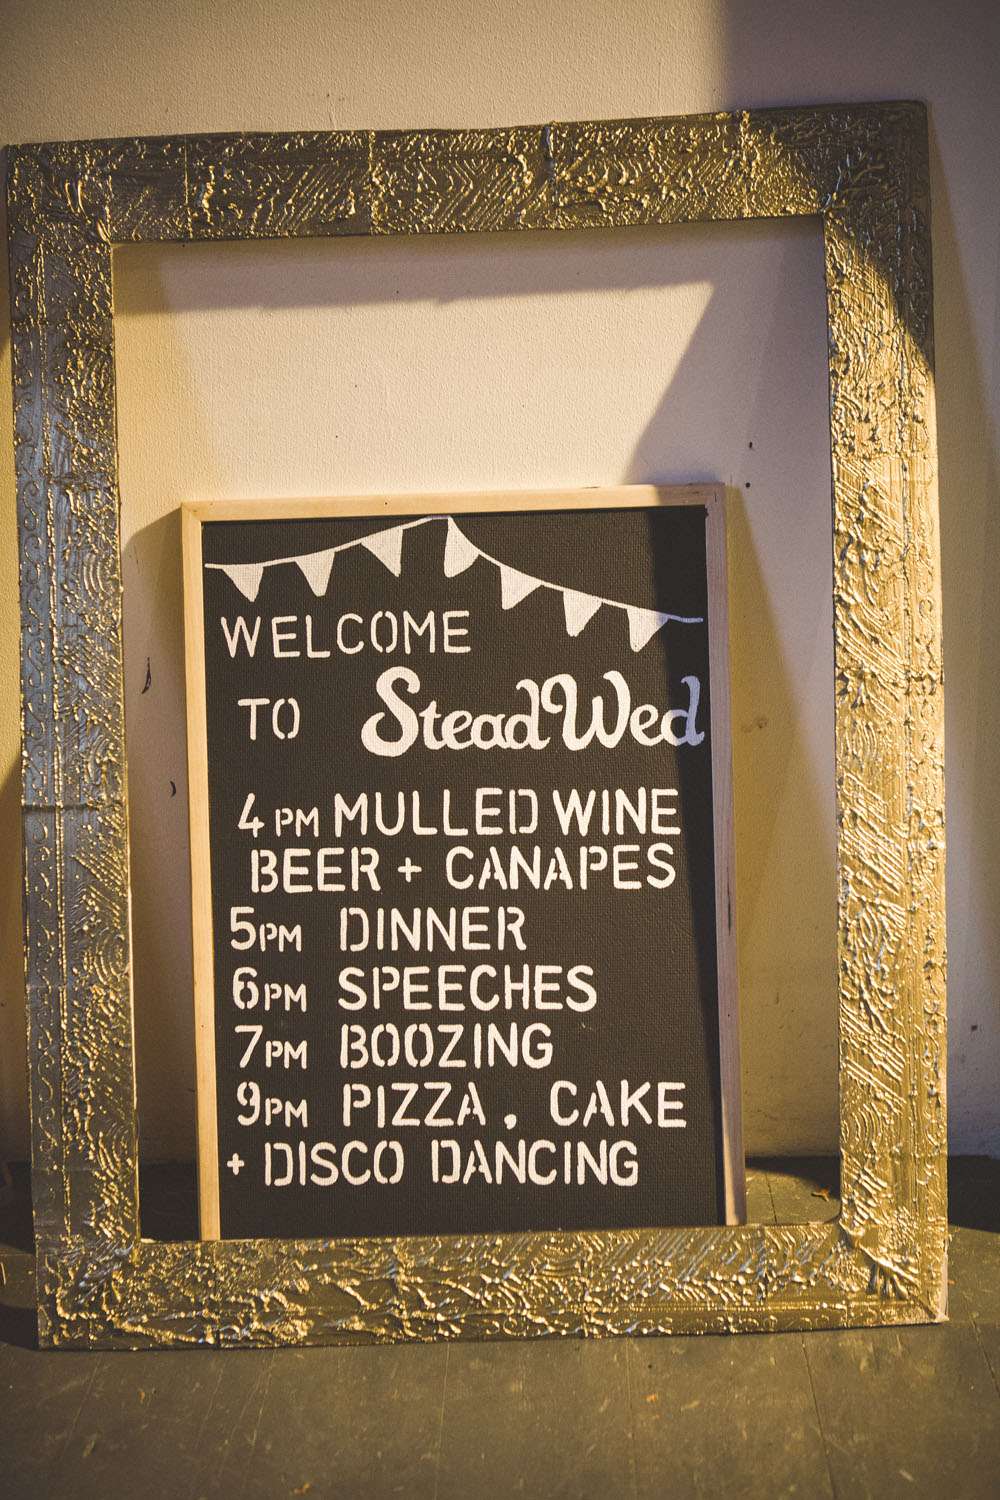 WELCOME
TO SteadWed
4PM MULLED WINE
BEER + CANAPES
5PM DINNER
6PM SPEECHES
7PM BOOZING
9PM PIZZA, CAKE
+ DISCO DANCING